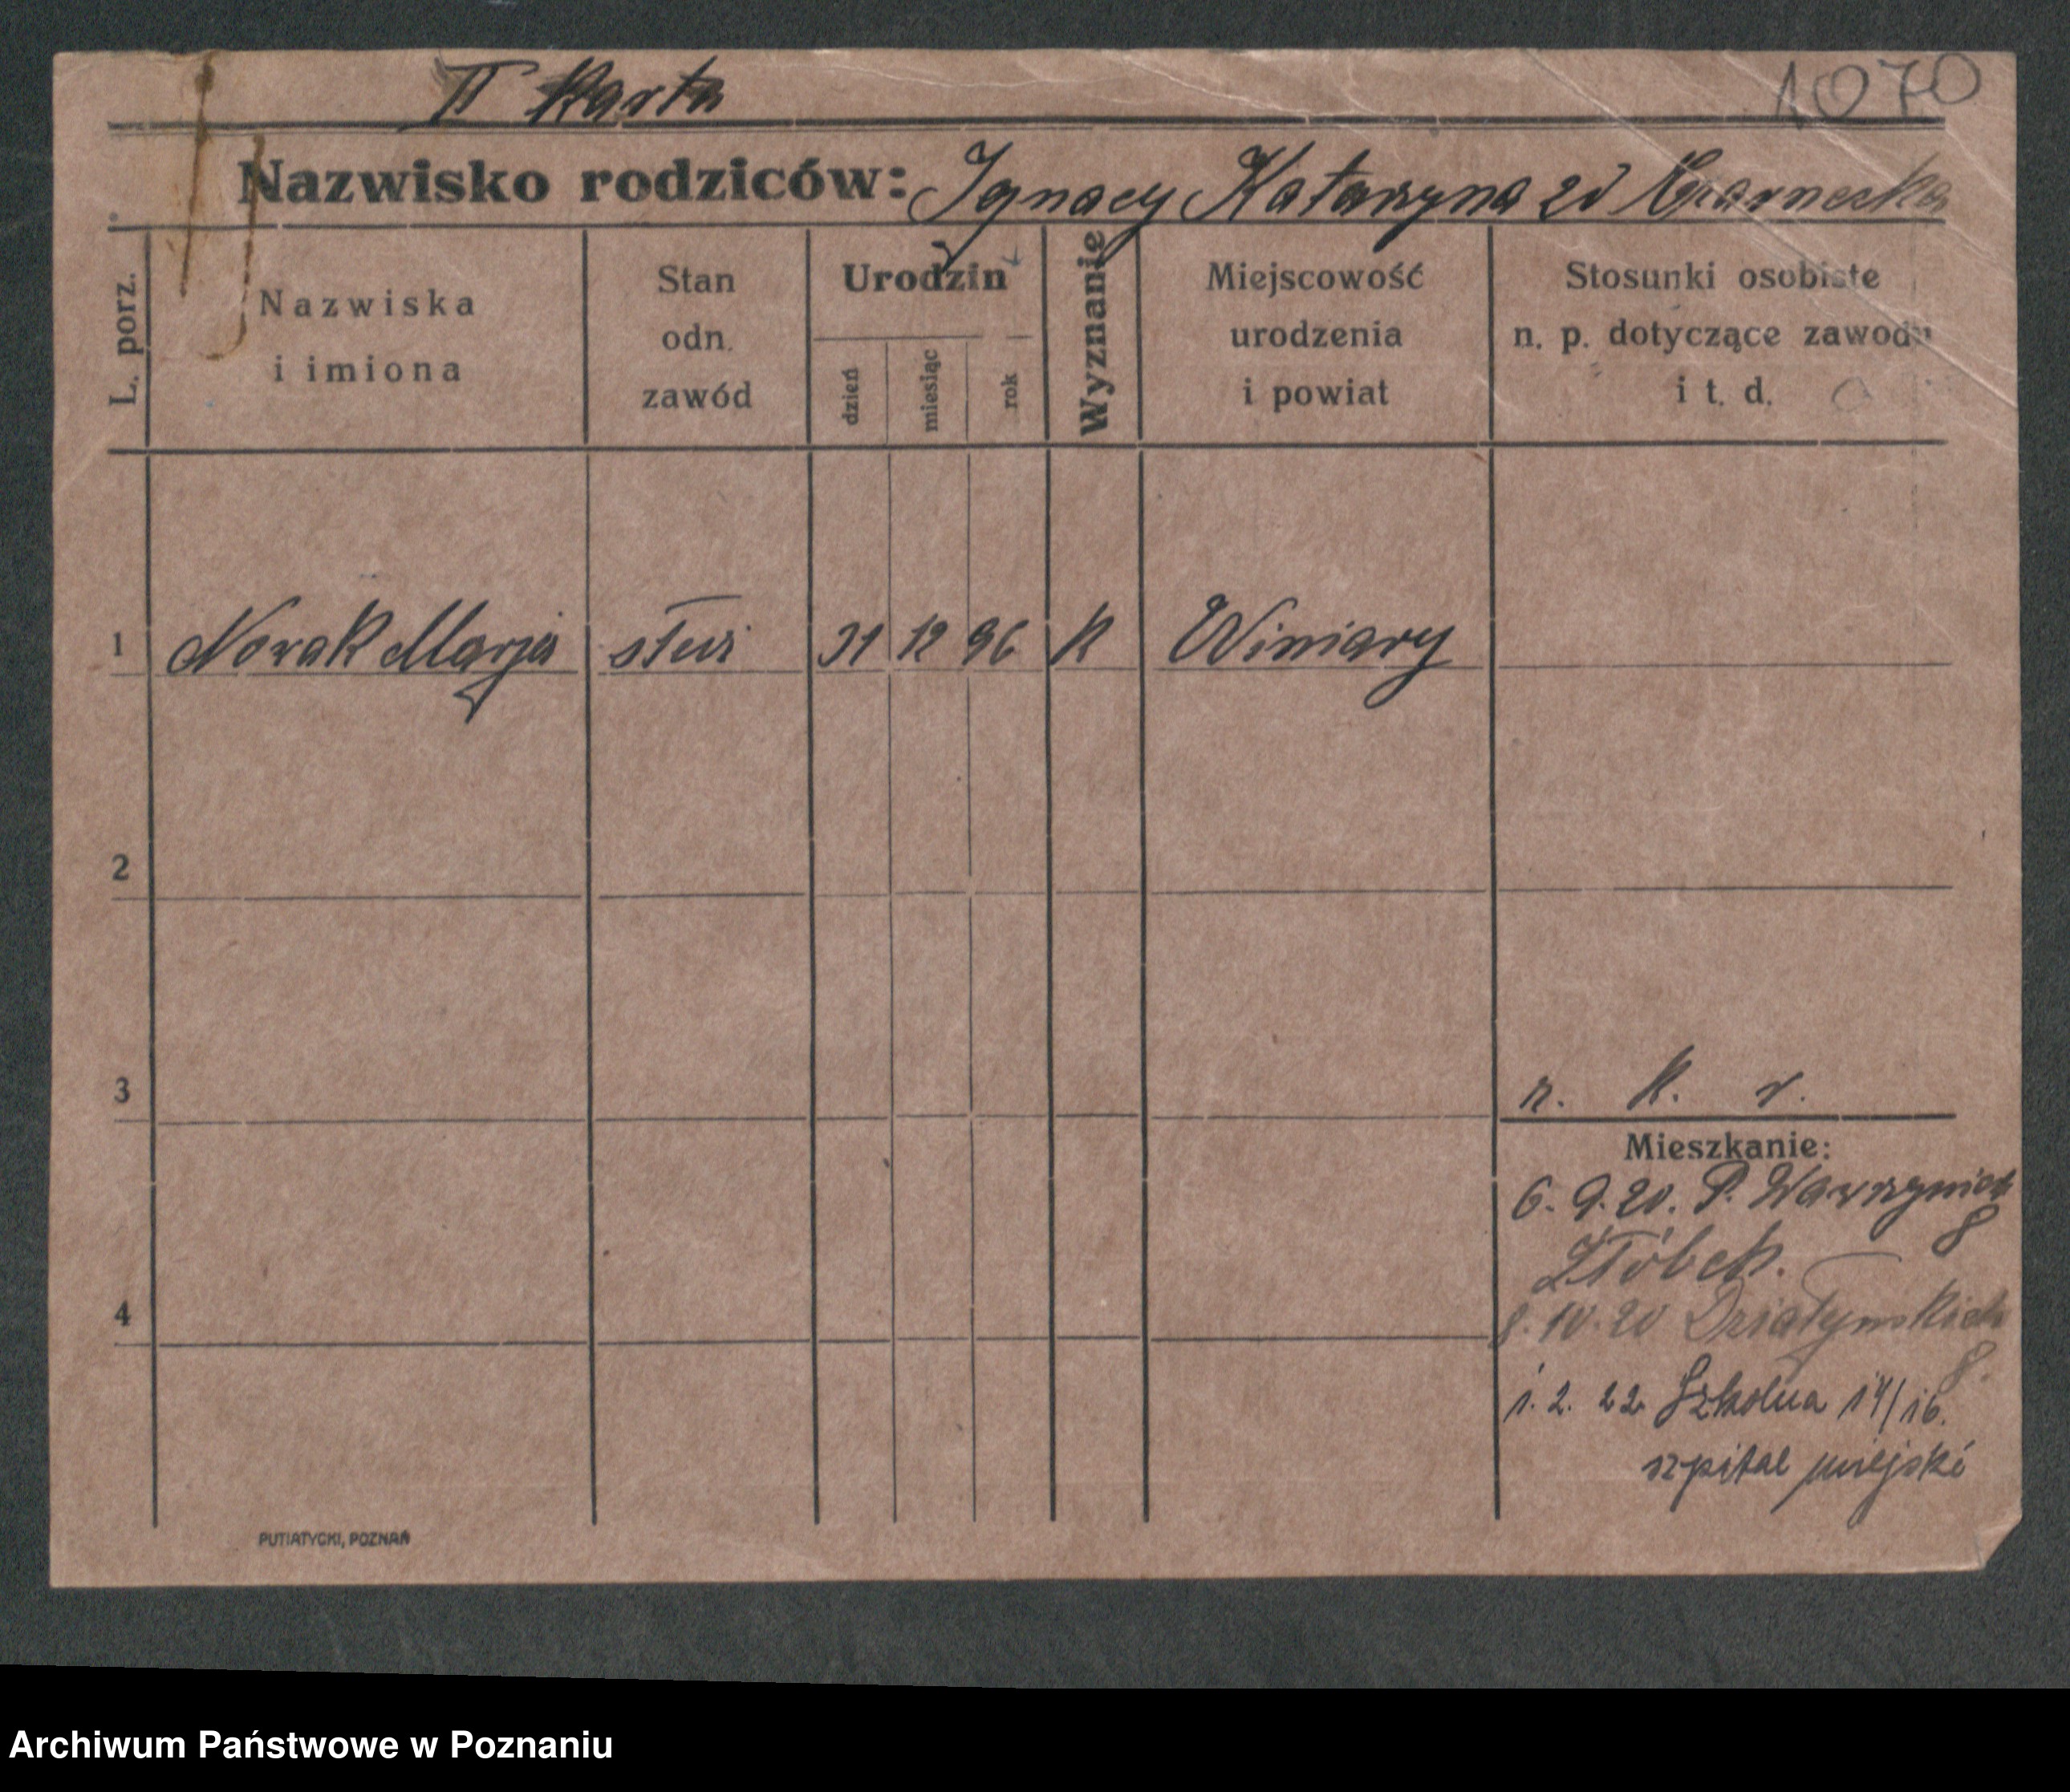 II Karta
1070
Nazwisko rodziców: Ignacy Katarzyna zd Czarnecka
L. porz.
Nazwiska
i imiona
Stan
odn.
zawód
Urodzin
dzień
miesiąc
rok
Wyznanie
Miejscowość
urodzenia
i powiat
Stosunki osobiste
n. p. dotyczące zawodu
i t. d.
1 Nowak Marja służ 31 12 96 K Winiary
2
3
n. k. r.
Mieszkanie:
6. 9. 20. P. Wawrzyniec
8
Żłóbek.
4
8. 10. 20 Działyńskich
8.
1. 2. 22 Szkolna 14/16.
szpital miejski
PUTIATYCKI, POZNAŃ
Archiwum Państwowe w Poznaniu